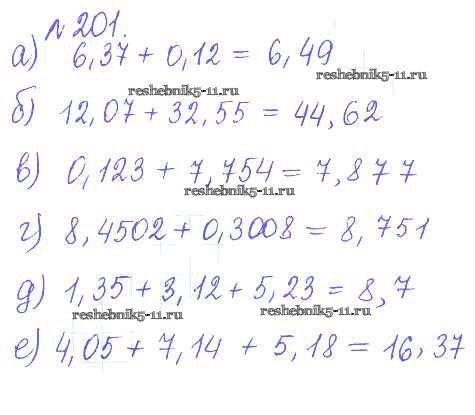 № 201.
а) 6,37 + 0,12 = 6,49
reshebnik5-11.ru
reshebnik5-11.ru
б) 12,07 + 32,55 = 44,62
в) 0,123 + 7,754 = 7,877
reshebnik5-11.ru
г) 8,4502 + 0,3008 = 8,751
д) 1,35 + 3,12 + 5,23 = 8,7
reshebnik5-11.ru
reshebnik5-11.ru
е) 4,05 + 7,14 + 5,18 = 16,37